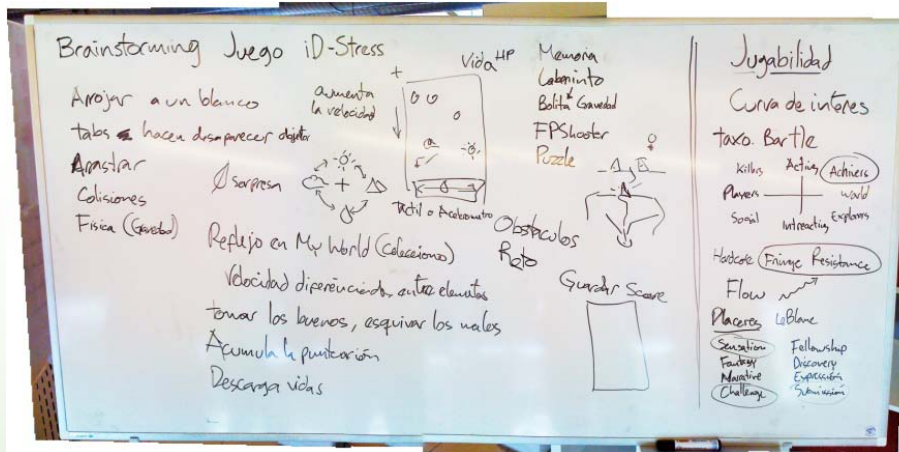 Brainstorming Juego iD-Stress
Arrojar a un blanco
tabs hacen desaparecer objetos
Arrastrar
Colisiones
Física (Gravedad)
sorpresa
+
aumenta
la velocidad
Vida HP
Táctil o Acelerometro
Reflejo en My World (Colecciono)
Velocidad diferenciada entre elementos
tomar los buenos, esquivar los males
Acumula la puntuación
Descarga vidas
Memoria
Laberinto
Bolita Gravedad
FPShooter
Puzzle
Obstáculos
Reto
Guardar Score
Jugabilidad
Curva de interes
taxo. Bartle
Killers Acting Achivers
Players World
Social Intreacting Explorers
Hardcore Fringe Resistance
Flow
Placeres LeBlanc
Sensation Fellowship
Fantasy Discovery
Narrative Expression
Challenge Submission